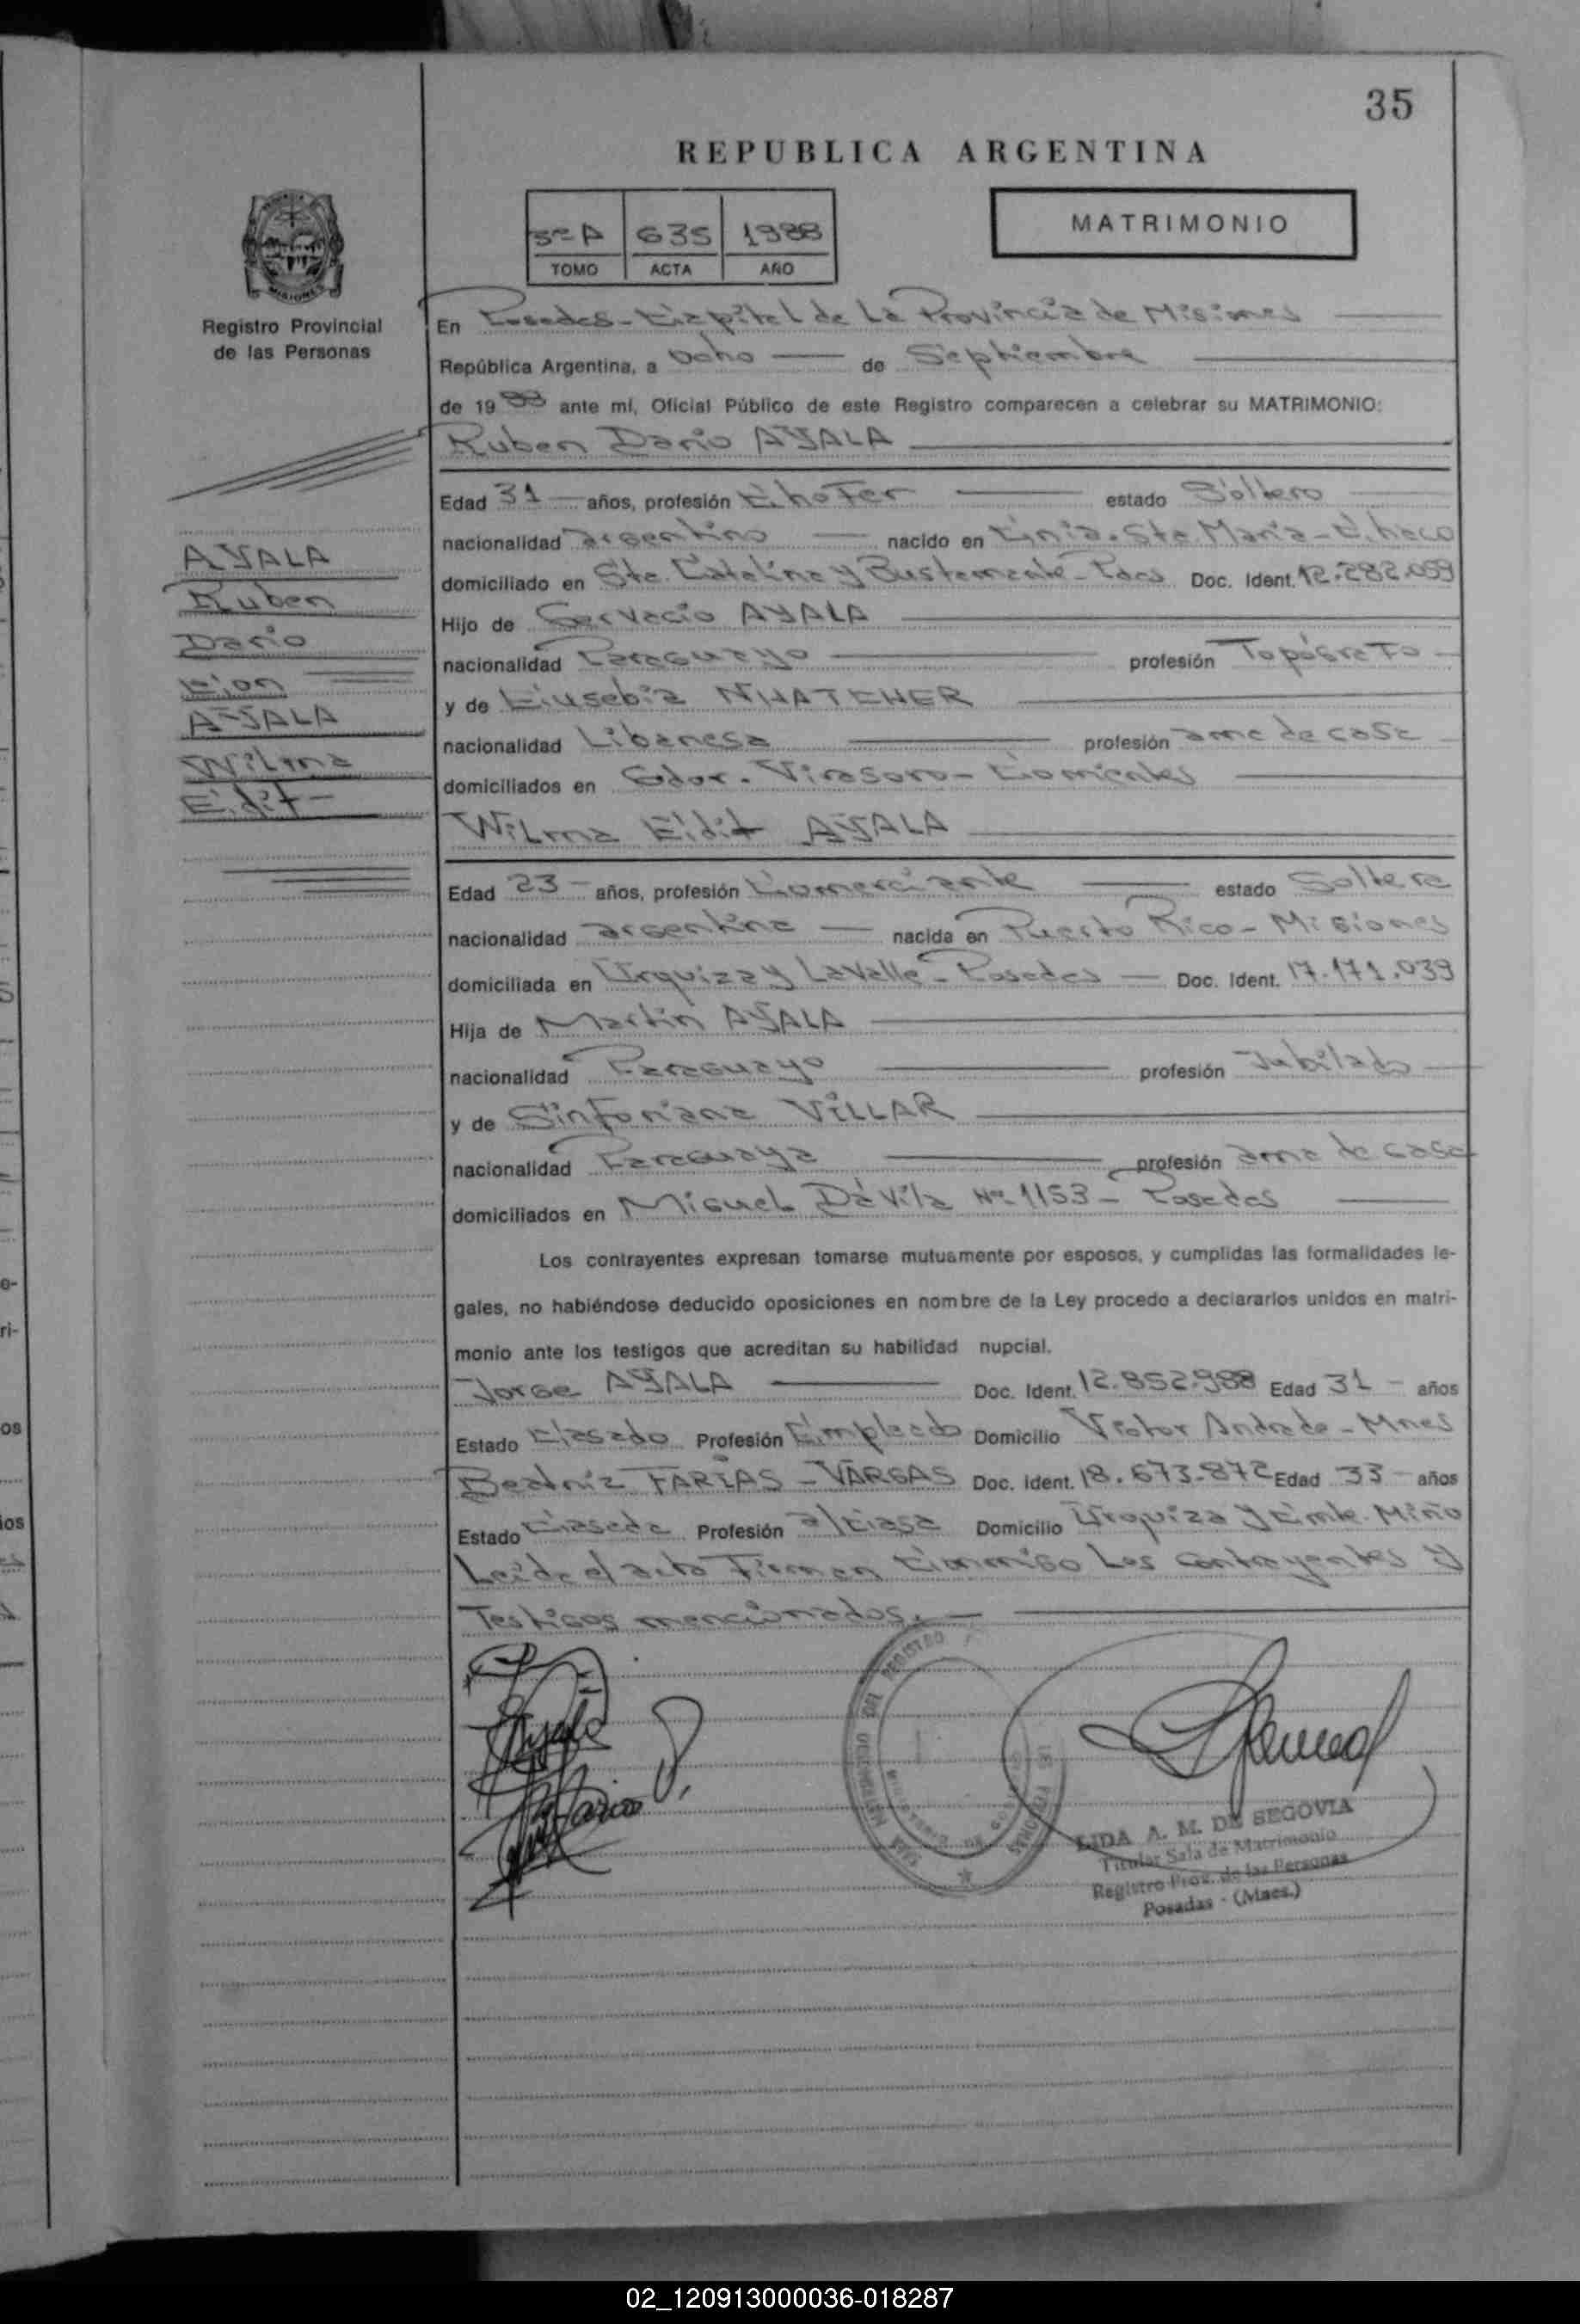 35
REPUBLICA ARGENTINA
3º A 635 1988
TOMO ACTA AÑO
MATRIMONIO
MISIONES
Registro Provincial
de las Personas
En Posadas - Capital de La Provincia de Misiones
República Argentina, a Ocho de Septiembre
de 19 88 ante mí, Oficial Público de este Registro comparecen a celebrar su MATRIMONIO:
Ruben Dario AYALA
Edad 31 años, profesión Chofer estado Soltero
nacionalidad argentino nacido en Cnia. Sta. Maria - Chaco
domiciliado en Sta. Catalina y Bustamante - Pdas Doc. Ident. 12.282.099
Hijo de Gervacio AYALA
nacionalidad Paraguayo profesión Topógrafo
y de Eusebia
nacionalidad Libanesa profesión ama de casa
domiciliados en Gdor. Virasoro - Corrientes
Wilma Edit AYALA
Edad 23 años, profesión Comerciante estado Soltera
nacionalidad argentina nacida en Puerto Rico - Misiones
domiciliada en Urquiza y Lavalle - Posadas Doc. Ident. 17.171.039
Hija de Martin AYALA
nacionalidad Paraguayo profesión Jubilado
y de Sinforiana VILLAR
nacionalidad Paraguaya profesión ama de casa
domiciliados en Miguel Dávila Nº 1153 - Posadas
Los contrayentes expresan tomarse mutuamente por esposos, y cumplidas las formalidades le-
gales, no habiéndose deducido oposiciones en nombre de la Ley procedo a declararlos unidos en matri-
monio ante los testigos que acreditan su habilidad nupcial.
Jorge AYALA Doc. Ident. 12.852.988 Edad 31 años
Estado Casado Profesión Empleado Domicilio Victor Andrade - Mnes
Beatriz FARIAS - VARGAS Doc. Ident. 18.673.872 Edad 33 años
Estado Casada Profesión a/casa Domicilio Urquiza y Cmte. Miño
Leida el acta Firman Conmigo Los Contrayentes y
Testigos mencionados.
AYALA
Ruben
Dario
con
AYALA
Wilma
Edit
LIDA A. M. DE SEGOVIA
Titular Sala de Matrimonio
Registro Prov. de las Personas
Posadas - (Mnes.)
02_120913000036-018287